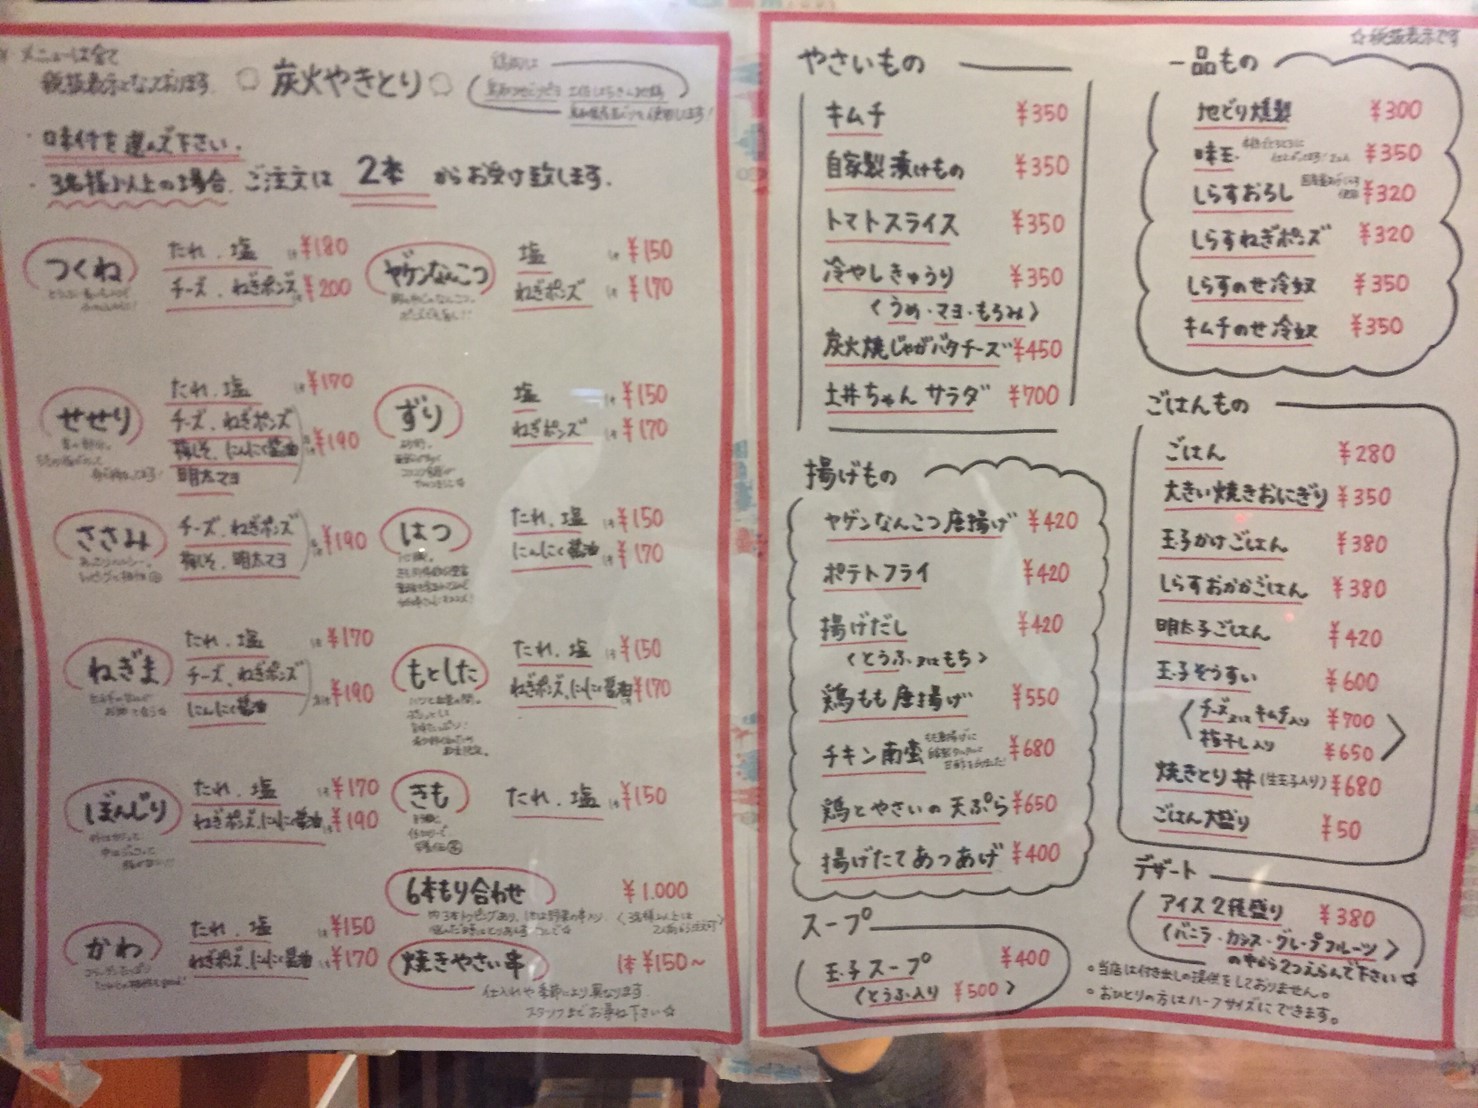 メニューは全て
税抜表示となっております。
炭火やきとり
・味付を選んで下さい。
・3名様以上の場合、ご注文は 2本 からお受け致します。
つくね
たれ、塩 ¥180
チーズ、ねぎポンズ ¥200
せせり
たれ、塩 ¥170
チーズ、ねぎポンズ
梅しそ、にんにく醤油
明太マヨ
¥190
ささみ
チーズ、ねぎポンズ
梅しそ、明太マヨ
¥190
ねぎま
たれ、塩 ¥170
チーズ、ねぎポンズ
にんにく醤油
¥190
ぼんじり
たれ、塩 ¥170
ねぎポンズ、にんにく醤油 ¥190
かわ
たれ、塩 ¥150
ねぎポンズ、にんにく醤油 ¥170
ヤゲンなんこつ
塩 ¥150
ねぎポンズ ¥170
ずり
塩 ¥150
ねぎポンズ ¥170
はつ
たれ、塩 ¥150
にんにく醤油 ¥170
もとした
たれ、塩 ¥150
ねぎポンズ、にんにく醤油 ¥170
きも
たれ、塩 ¥150
6本もり合わせ ¥1.000
焼きやさい串 1本 ¥150〜
仕入れや季節により異なります
スタッフまでお尋ね下さい☆
やさいもの
キムチ ¥350
自家製漬けもの ¥350
トマトスライス ¥350
冷やしきゅうり ¥350
〈うめ・マヨ・もろみ〉
炭火焼じゃがバタチーズ ¥450
土井ちゃんサラダ ¥700
揚げもの
ヤゲンなんこつ唐揚げ ¥420
ポテトフライ ¥420
揚げだし ¥420
〈とうふ又はもち〉
鶏もも唐揚げ ¥550
チキン南蛮 ¥680
鶏とやさいの天ぷら ¥650
揚げたてあつあげ ¥400
スープ
玉子スープ ¥400
〈とうふ入り ¥500〉
☆税抜表示です
一品もの
地どり燻製 ¥300
味玉 ¥350
しらすおろし ¥320
しらすねぎポンズ ¥320
しらすのせ冷奴 ¥350
キムチのせ冷奴 ¥350
ごはんもの
ごはん ¥280
大きい焼きおにぎり ¥350
玉子かけごはん ¥380
しらすおかかごはん ¥380
明太子ごはん ¥420
玉子ぞうすい ¥600
チーズ又はキムチ入り ¥700
梅干し入り ¥650
焼きとり丼(生玉子入り) ¥680
ごはん大盛り ¥50
デザート
アイス2種盛り ¥380
〈バニラ・カシス・グレープフルーツ〉
の中から2つえらんで下さい☆
○当店は付き出しの提供をしておりません。
○おひとりの方はハーフサイズにできます。